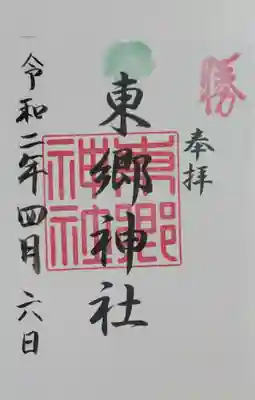 勝
奉拝
東郷神社
東郷神社
令和二年四月六日